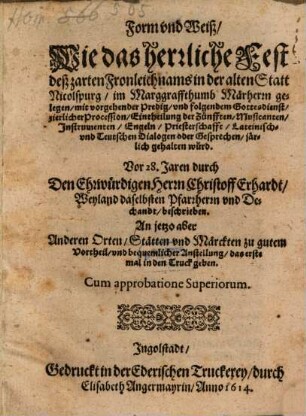 Form vnd Weiß/
Wie das herrliche Fest
deß zarten Fronleichnams in der alten Statt
Nicolspurg/ im Marggraffthumb Märherrn ge-
legen/ mit vorgehender Predig/ vnd folgendem Gottesdienst/
zierlicher Procession/ Eintheilung der Zünfften/ Musicanten/
Instrumenten/ Engeln/ Priesterschafft/ Lateinisch-
vnd Teutschen Dialogen oder Gesprechen/ jär-
lich gehalten würd.
Vor 28. Jaren durch
Den Ehrwürdigen Herrn Christoff Erhardt/
Weyland daselbsten Pfarrherrn vnd De-
chandt/ beschrieben.
An jetzo aber
Anderen Orten/ Stätten vnd Märckten zu gutem
Vortheil/ vnd bequemlicher Anstellung/ das erste
mal in den Truck geben.
Cum approbatione Superiorum.
Ingolstadt/
Gedruckt in der Ederischen Truckerey/ durch
Elisabeth Angermayrin/ Anno 1614.